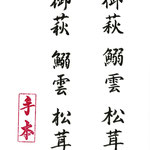 御萩 鰯雲 松茸
御萩 鰯雲 松茸
手本